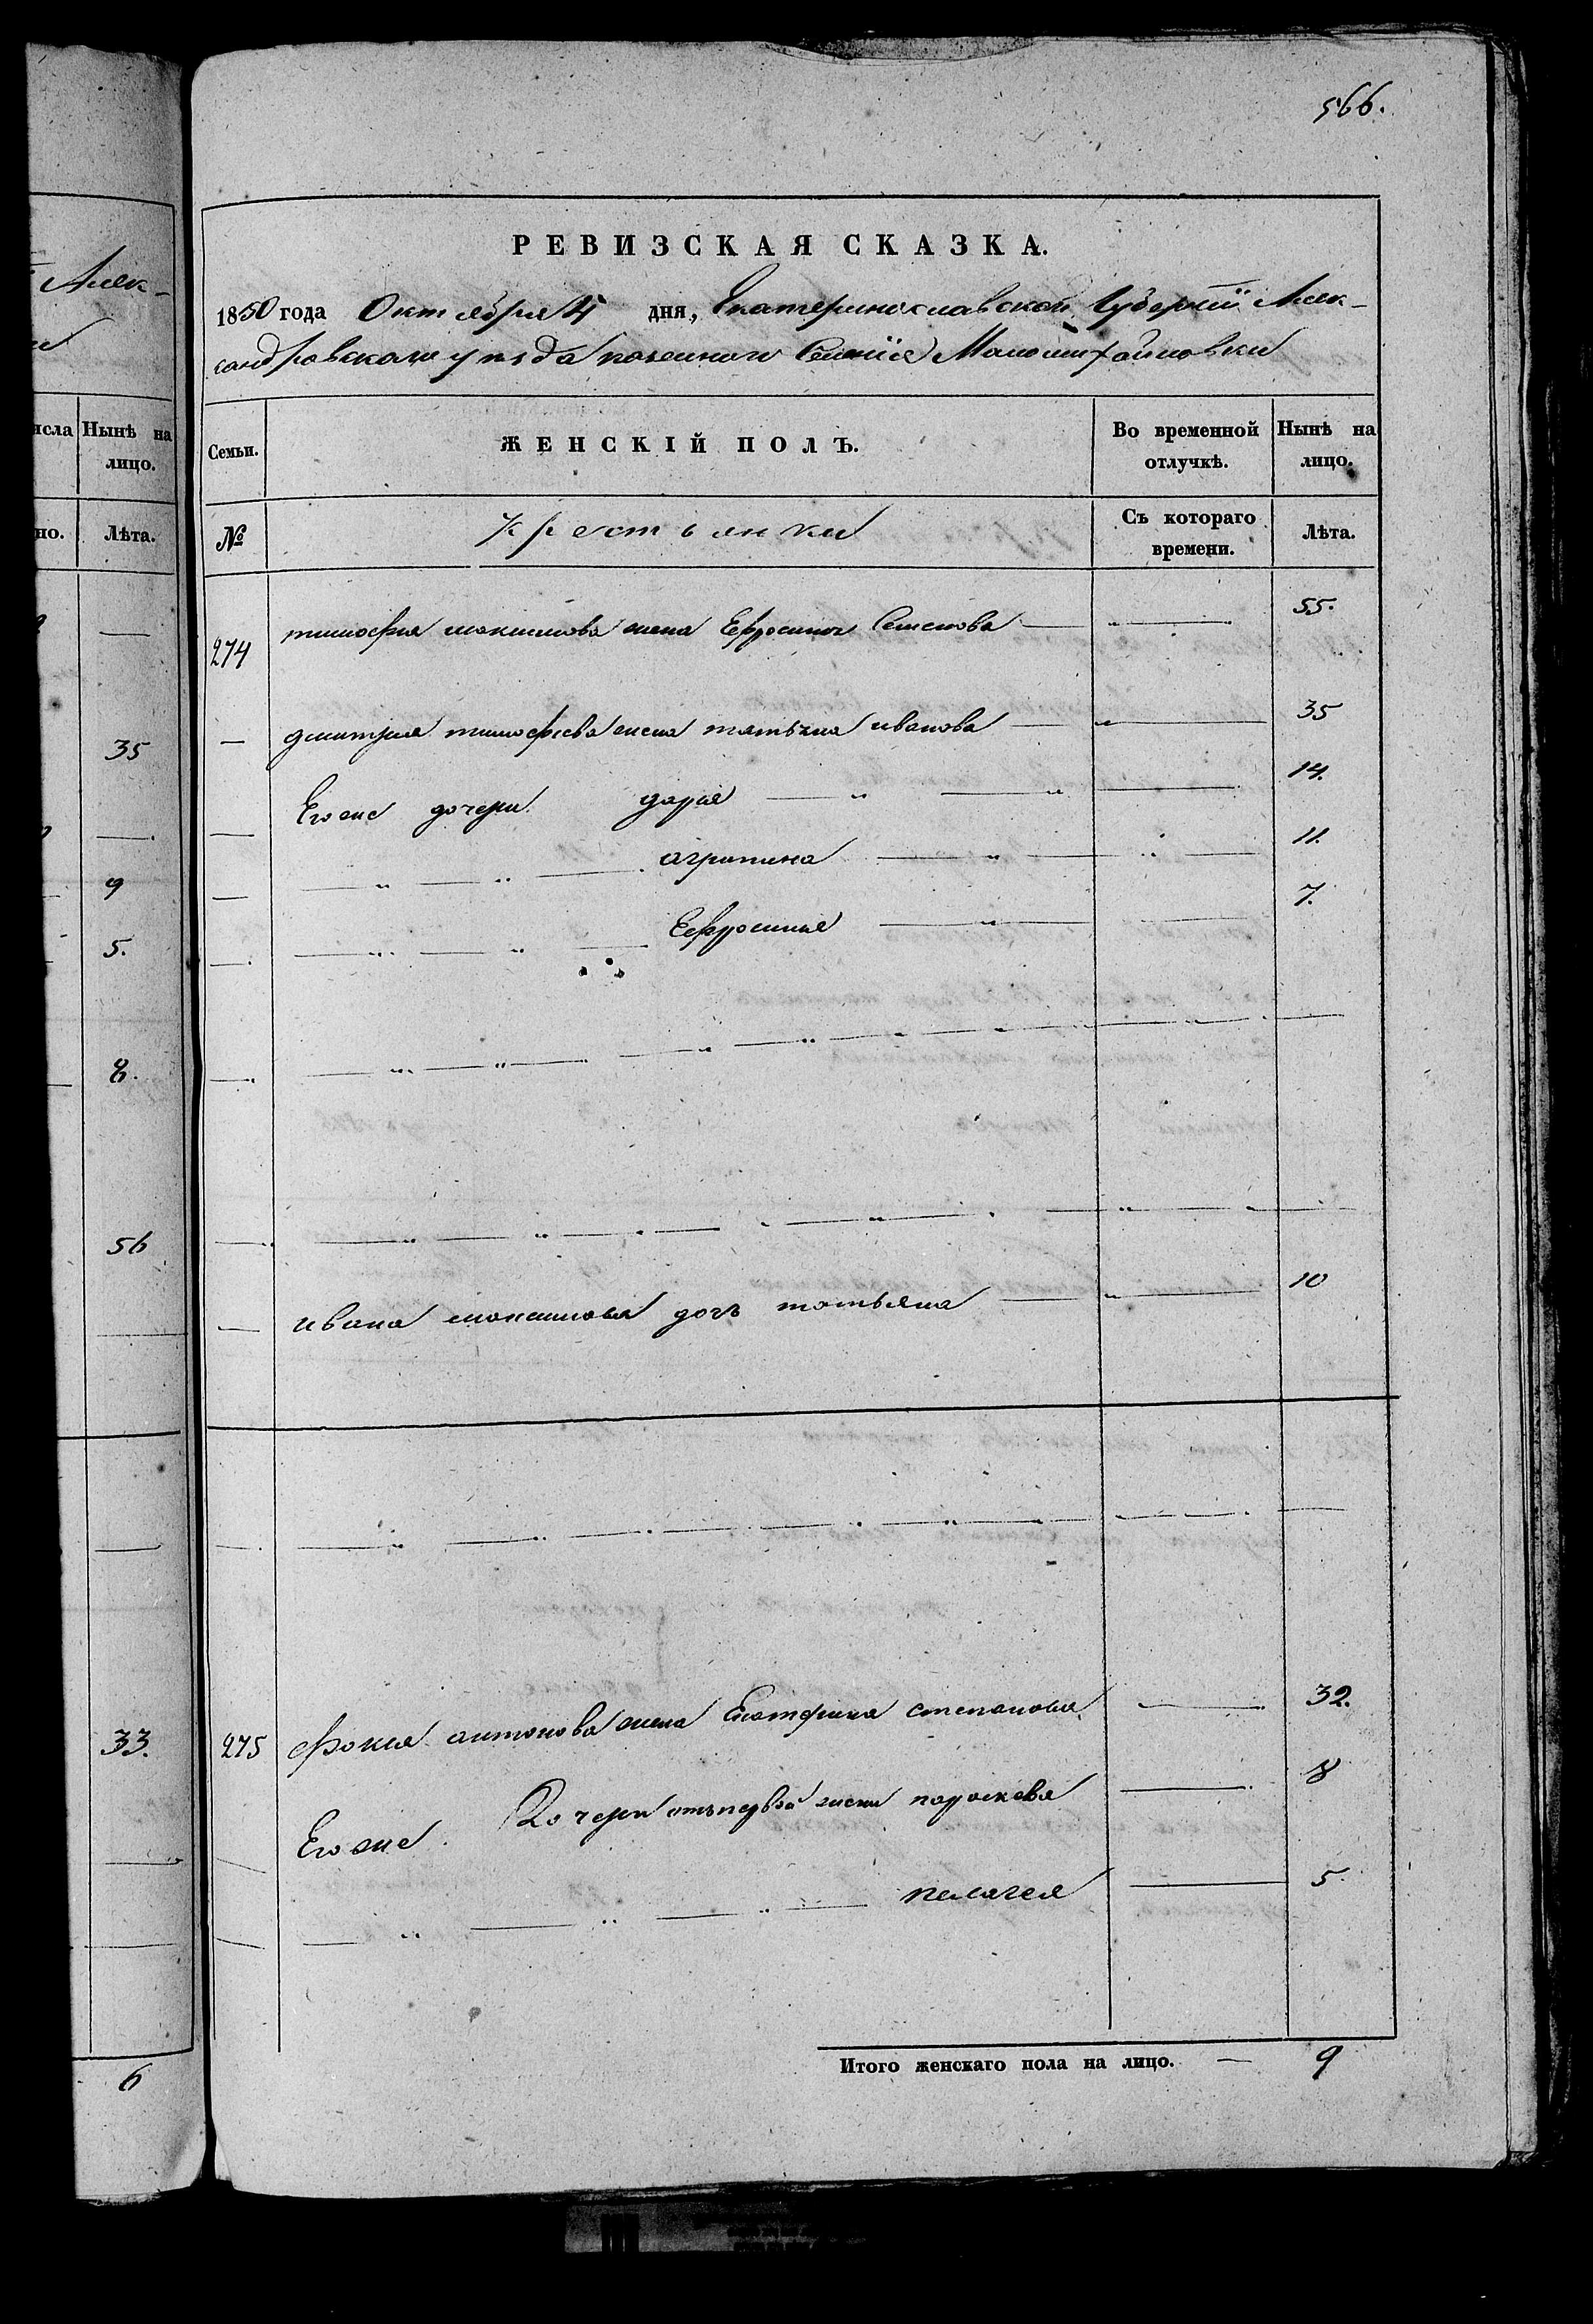 566.
РЕВИЗСКАЯ СКАЗКА.
1850 года Октября 4 дня, Екатеринославской Губерніи Алек-
сандровскаго уезда казеннаго Селенія Маломихайловки
Семьи.
ЖЕНСКІЙ ПОЛЪ.
Во временной отлучкѣ.
Нынѣ на лицо.
№
Крестьянки
Съ котораго времени.
Лѣта.
274 тимофея максимова жена Ефросинья Семенова 55.
— дмитрия тимофеева жена татьяна иванова — 35
— Егоже дочери дарья — " — " 14.
— — " — " — агрипина — " — 11.
— — " — " — Ефросинья — " — 7.
— ивана максимова дочь татьяна — 10
275 фокия антонова жена Екатерина степанова — 32.
Егоже Дочери отъ первой жены пораскева — 8
— " — " — " — пелагея — 5.
Итого женскаго пола на лицо. — 9
Алек-
исла
Нынѣ на лицо.
но.
Лѣта.
35
9
5.
8.
56
33.
6